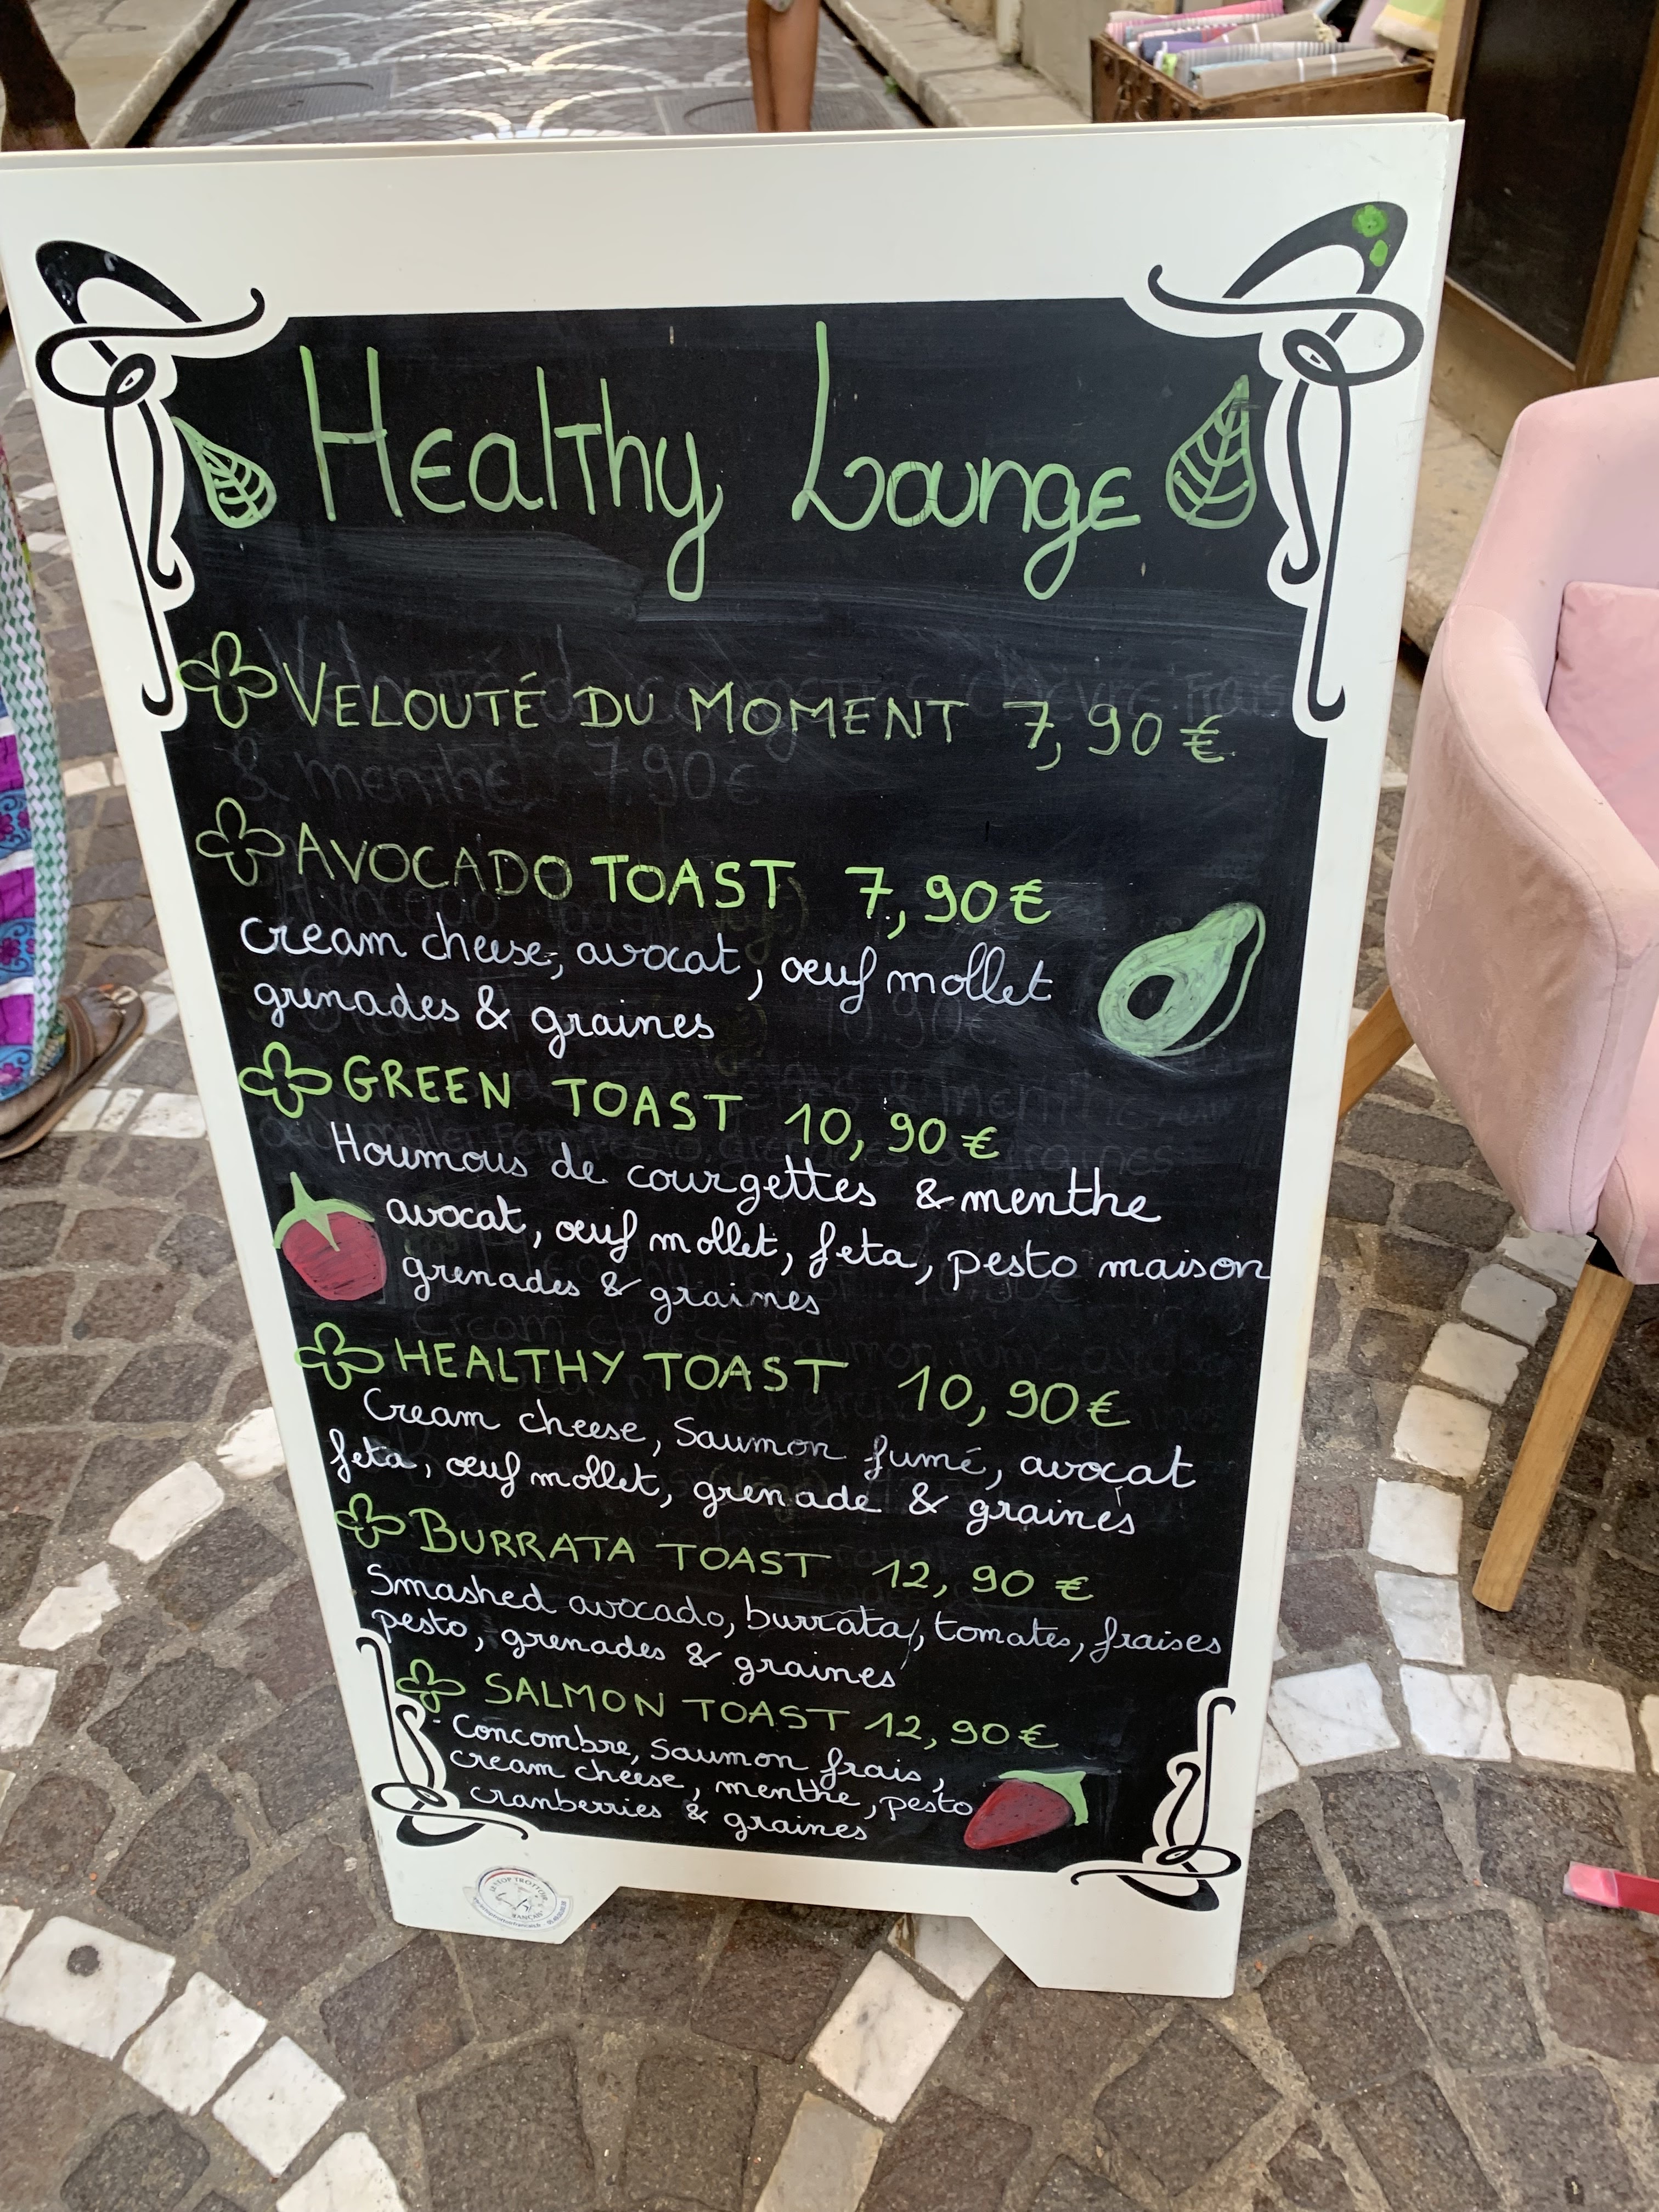 Healthy Lounge
VELOUTÉ DU MOMENT 7,90 €
& menthe 7.90€
AVOCADO TOAST 7,90€
cream cheese, avocat, oeuf mollet
grenades & graines
GREEN TOAST 10,90€
Houmous de courgettes & menthe
avocat, oeuf mollet, feta, pesto maison
grenades & graines
HEALTHY TOAST 10,90€
Cream cheese, Saumon fumé, avocat
feta, oeuf mollet, grenade & graines
BURRATA TOAST 12,90 €
Smashed avocado, burrata, tomates, fraises
pesto, grenades & graines
SALMON TOAST 12,90€
Concombre, Saumon frais,
cream cheese, menthe, pesto
cranberries & graines
LE STOP TROTTOIR
FRANÇAIS